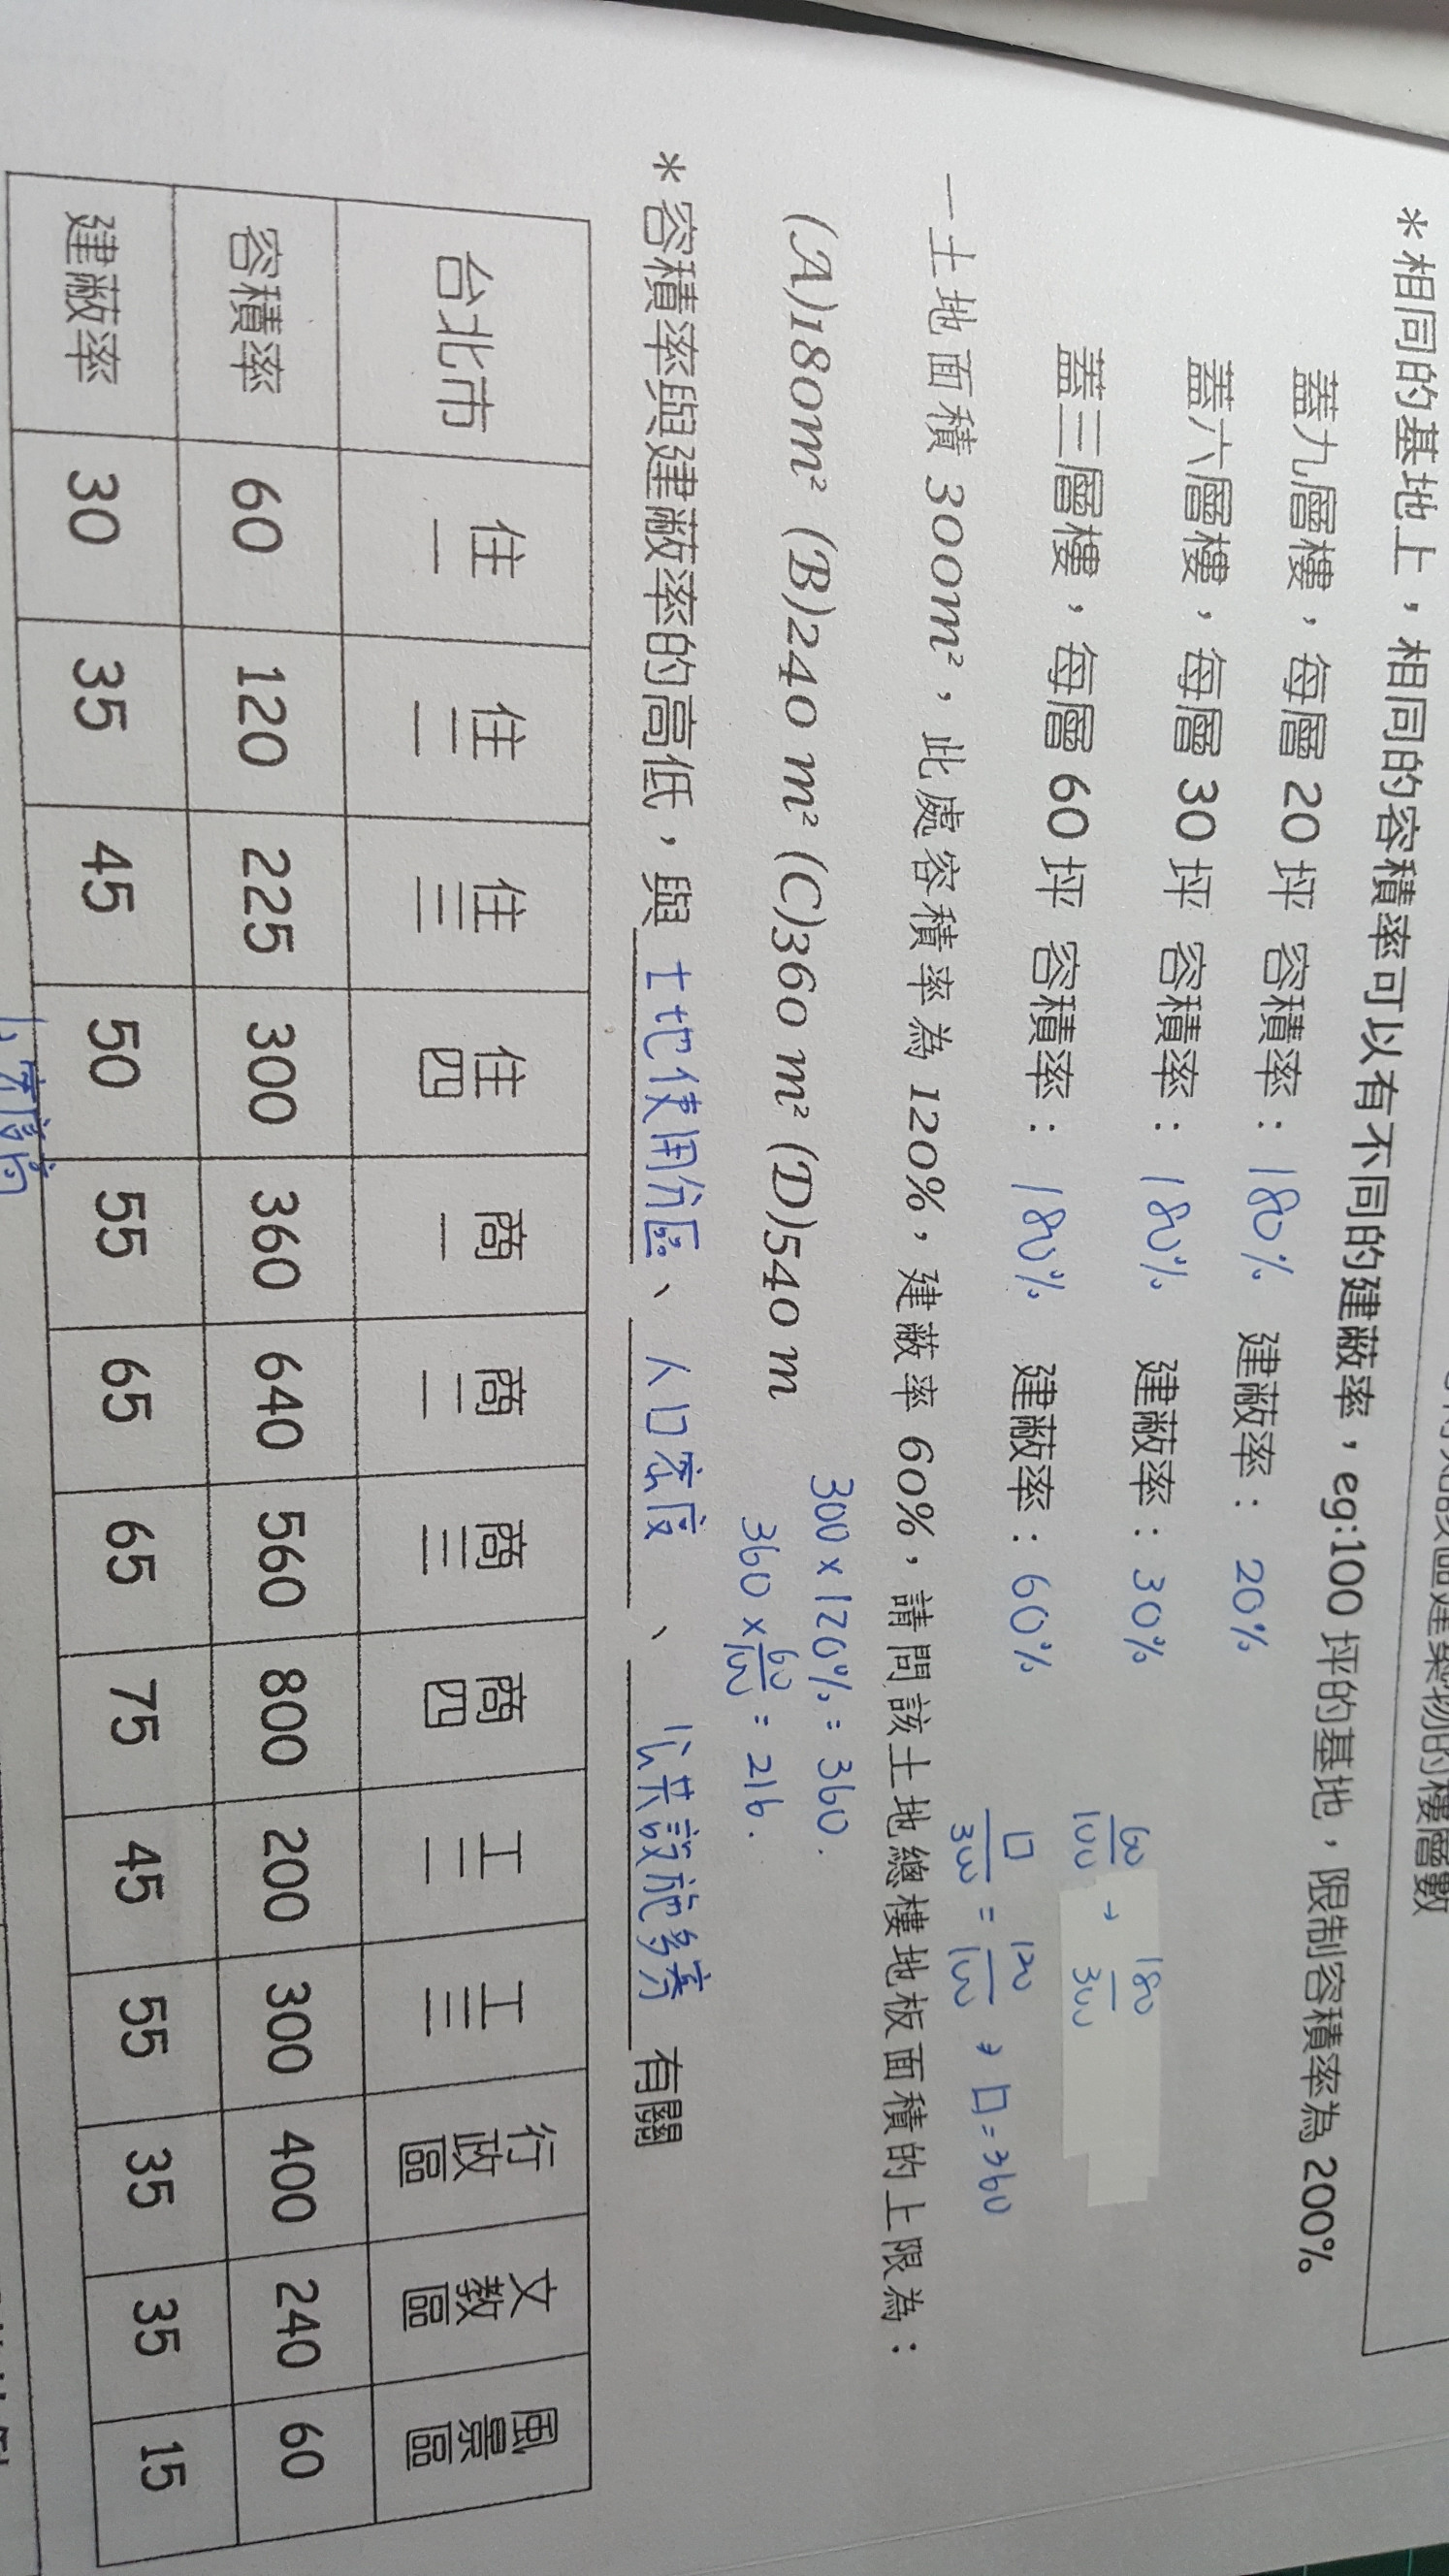 建築物的樓層數
*相同的基地上，相同的容積率可以有不同的建蔽率，eg:100 坪的基地，限制容積率為 200%
蓋九層樓，每層 20 坪 容積率：180% 建蔽率：20%
蓋六層樓，每層 30 坪 容積率：180% 建蔽率：30%
蓋三層樓，每層 60 坪 容積率：180% 建蔽率：60%
60/100 → 180/300
□/300 = 120/100 → □=360
一土地面積 300m²，此處容積率為 120%，建蔽率 60%，請問該土地總樓地板面積的上限為：
(A)180m² (B)240 m² (C)360 m² (D)540 m
300 × 120% = 360.
360 × 60/100 = 216.
*容積率與建蔽率的高低，與土地使用分區、人口密度、公共設施多寡有關
台北市 住一 住二 住三 住四 商一 商二 商三 商四 工二 工三 行政區 文教區 風景區
容積率 60 120 225 300 360 640 560 800 200 300 400 240 60
建蔽率 30 35 45 50 55 65 65 75 45 55 35 35 15